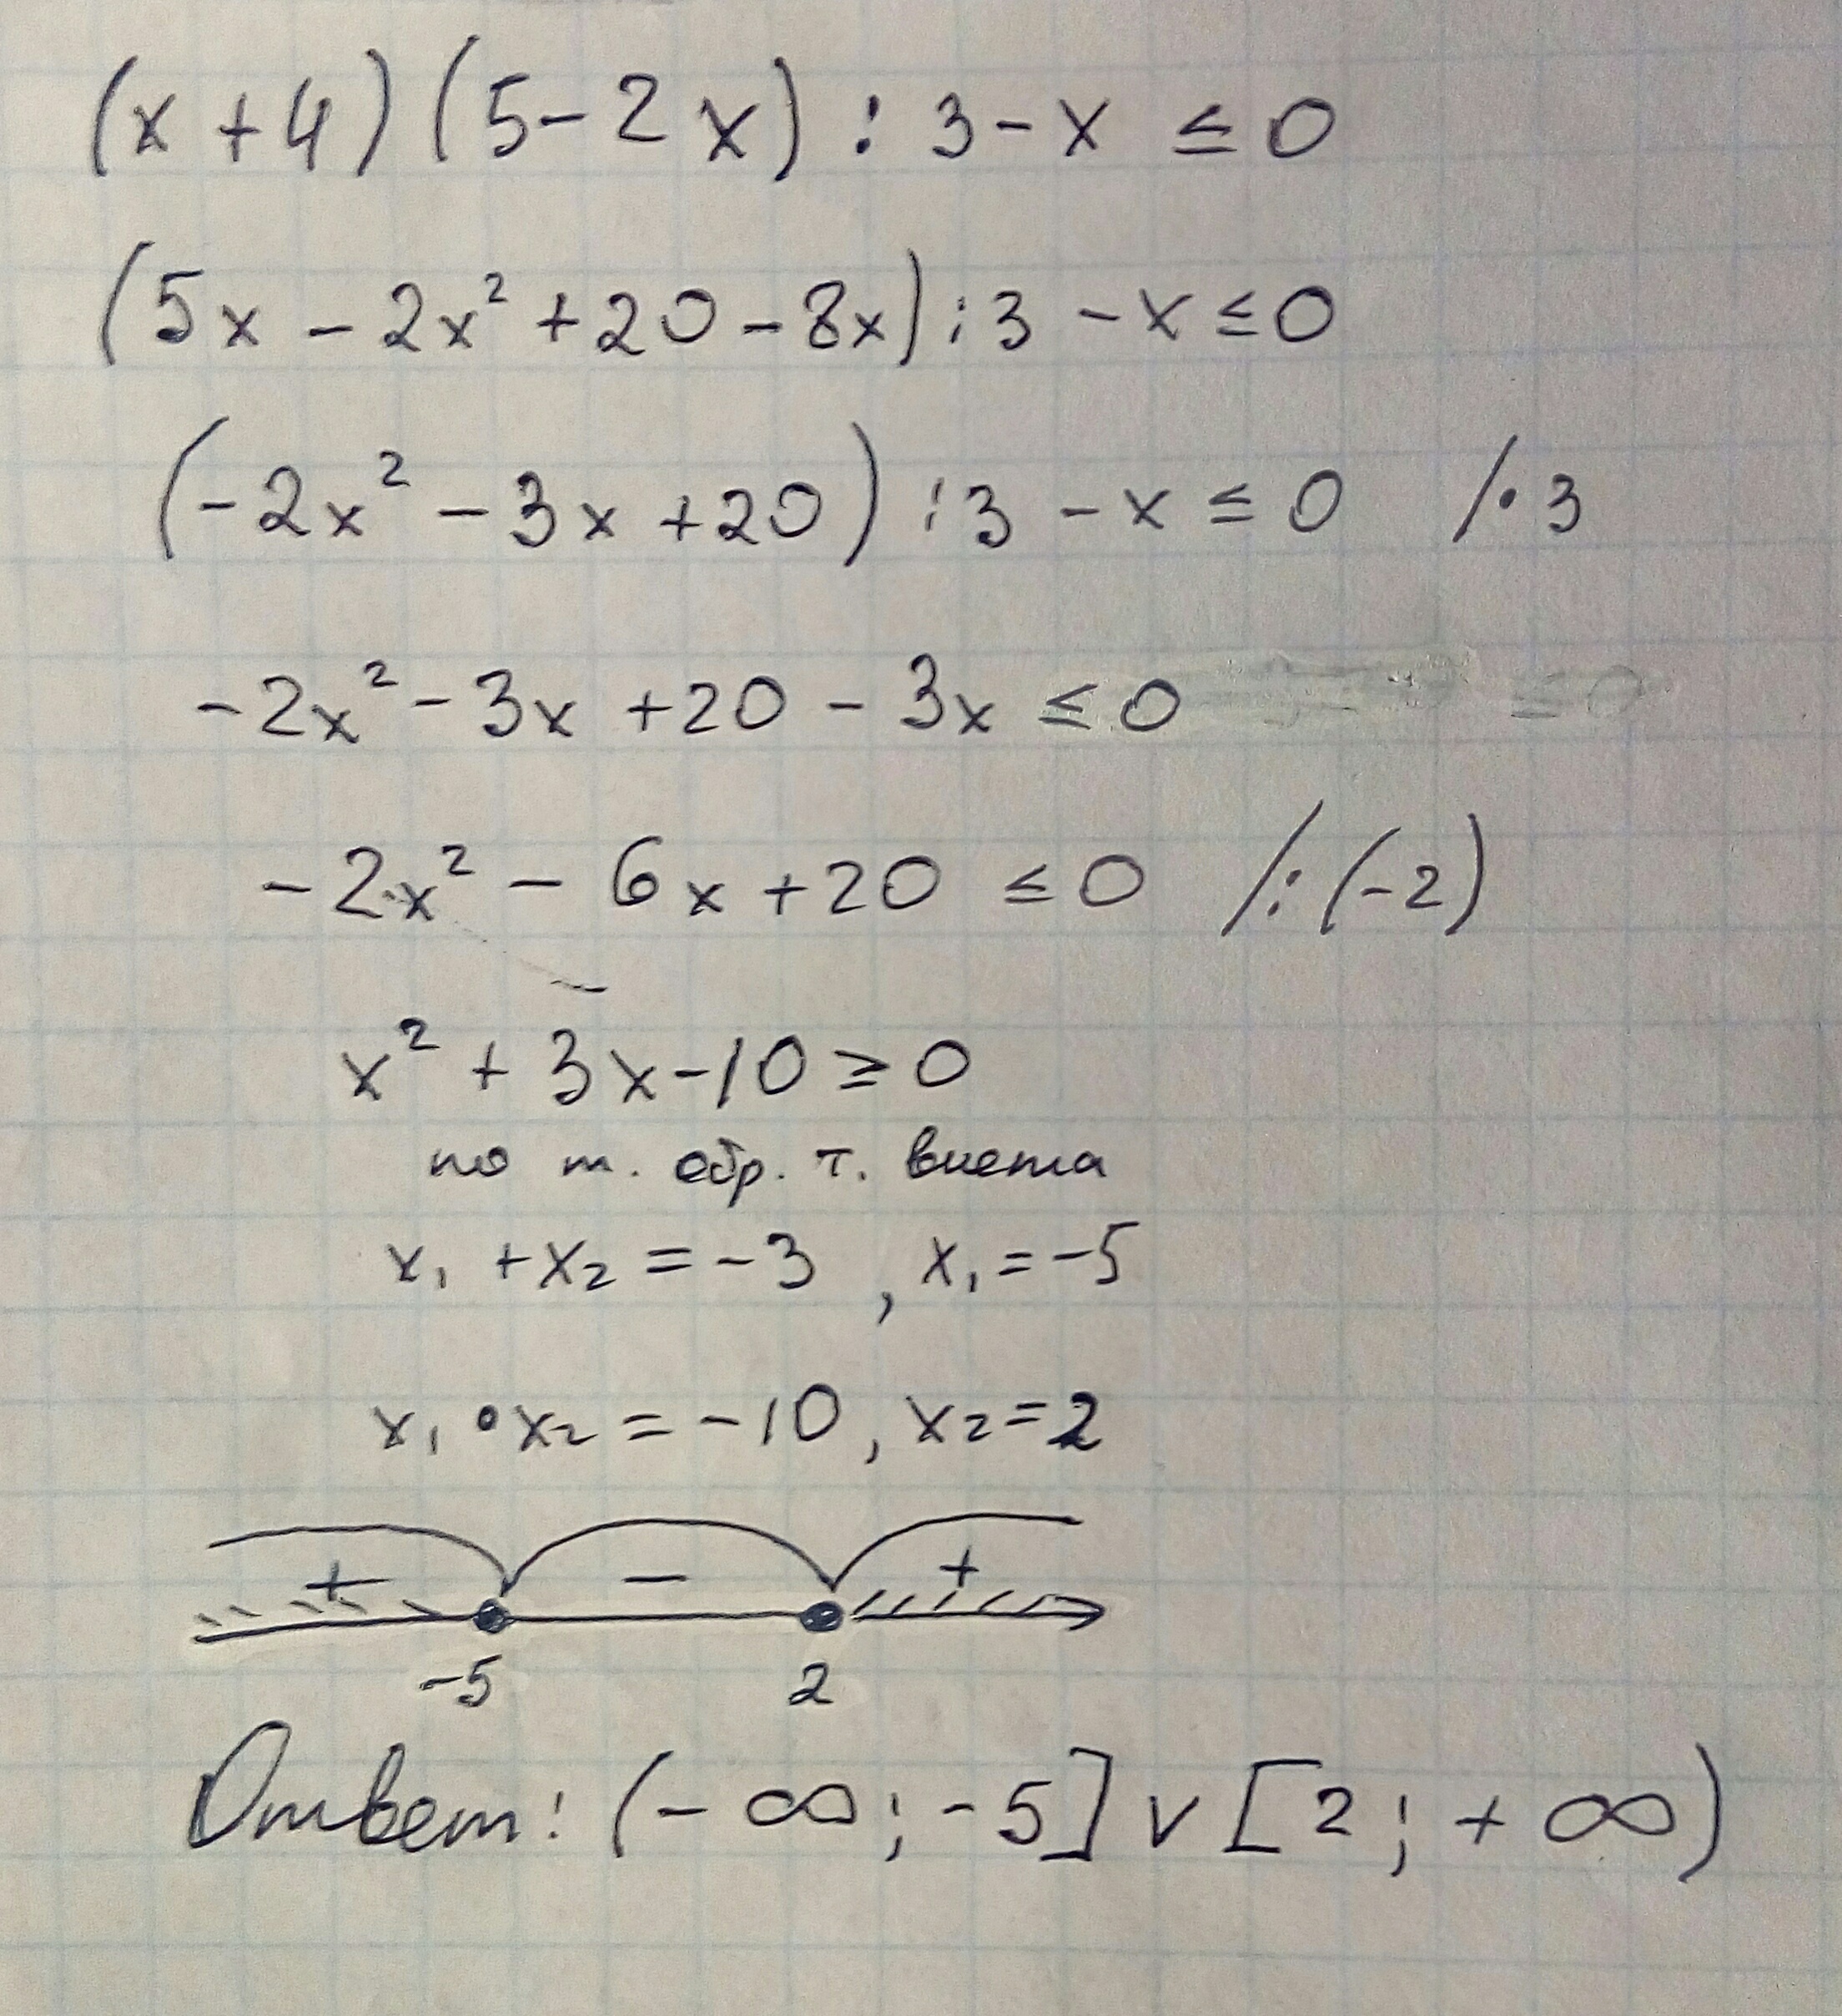 (x+4)(5-2x) : 3-x ≤ 0
(5x - 2x² + 20 - 8x) : 3 - x ≤ 0
(-2x² - 3x + 20) : 3 - x ≤ 0 /· 3
-2x² - 3x + 20 - 3x ≤ 0 ≤ 0
-2x² - 6x + 20 ≤ 0 /: (-2)
x² + 3x - 10 ≥ 0
по т. обр. т. виета
x₁ + x₂ = -3 , x₁ = -5
x₁ • x₂ = -10, x₂ = 2
+ - +
-5 2
Ответ: (-∞; -5] v [2; +∞)